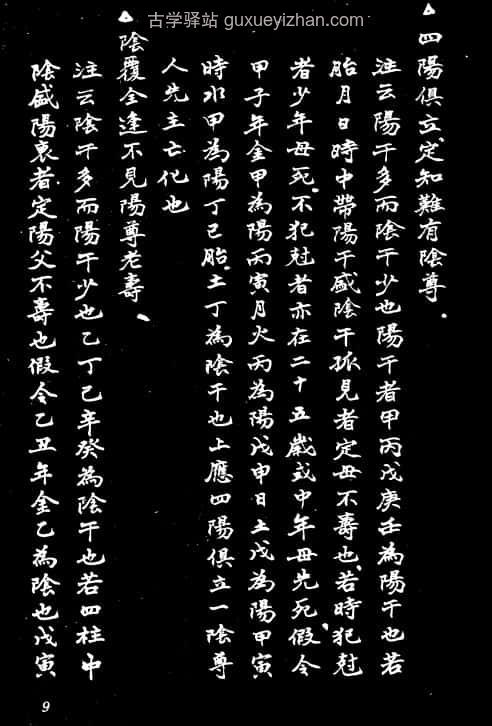 古学驿站 guxueyizhan.com
四陽俱立、定知難有陰尊．
注云陽干多而陰干少也陽干者甲丙戊庚壬為陽干也若
胎月日時中帶陽干盛陰干孤見者定母不壽也、若時犯尅
者少年母死、不犯尅者亦在二十五歲或中年母先死假令
甲子年金甲為陽丙寅月火丙為陽戊申日土戊為陽甲寅
時水甲為陽丁巳胎、土丁為陰干也上應四陽俱立一陰尊
人先主亡化也
陰覆全逢不見陽尊老壽、
注云陰干多而陽干少也乙丁己辛癸為陰干也若四柱中
陰盛陽衰者、定陽父不壽也假令乙丑年金乙為陰也戊寅
9